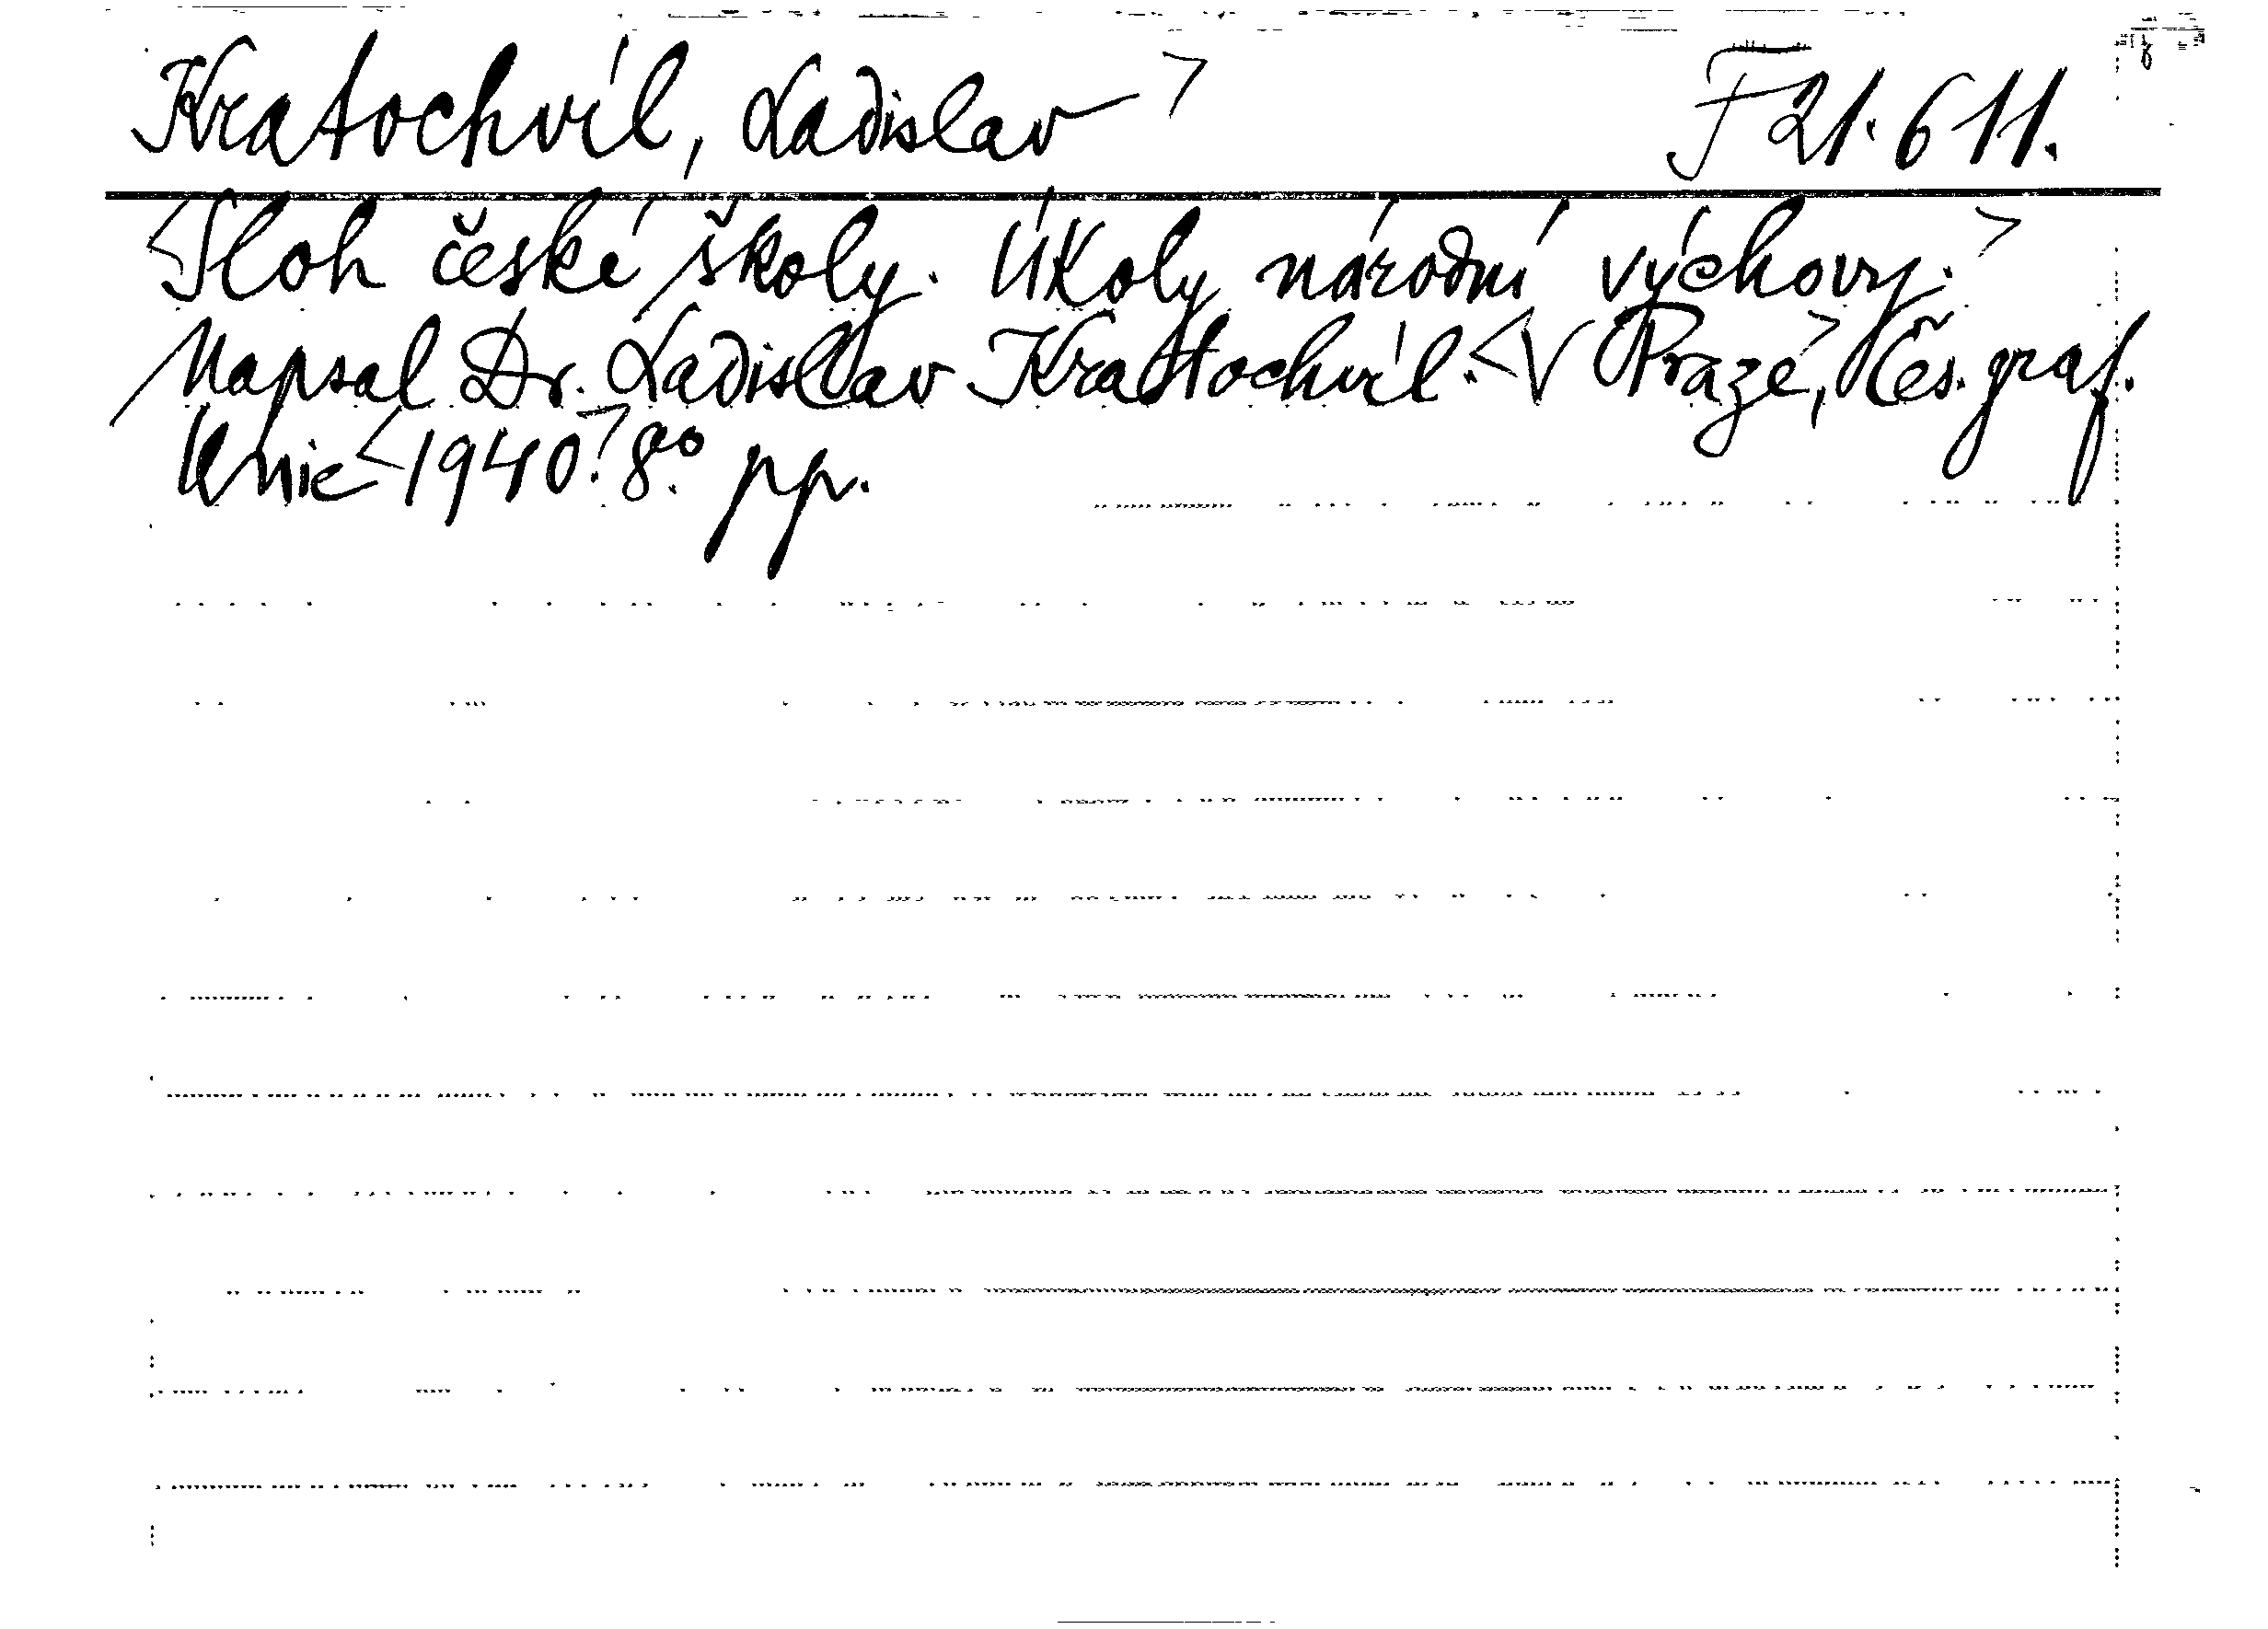 Kratochvíl, Ladislav>
F 21.611.
<Sloh české školy. Úkoly národní výchovy.>
Napsal Dr. Ladislav Kratochvíl.<V Praze>, Čes. graf.
Unie <1940.> 8° pp.